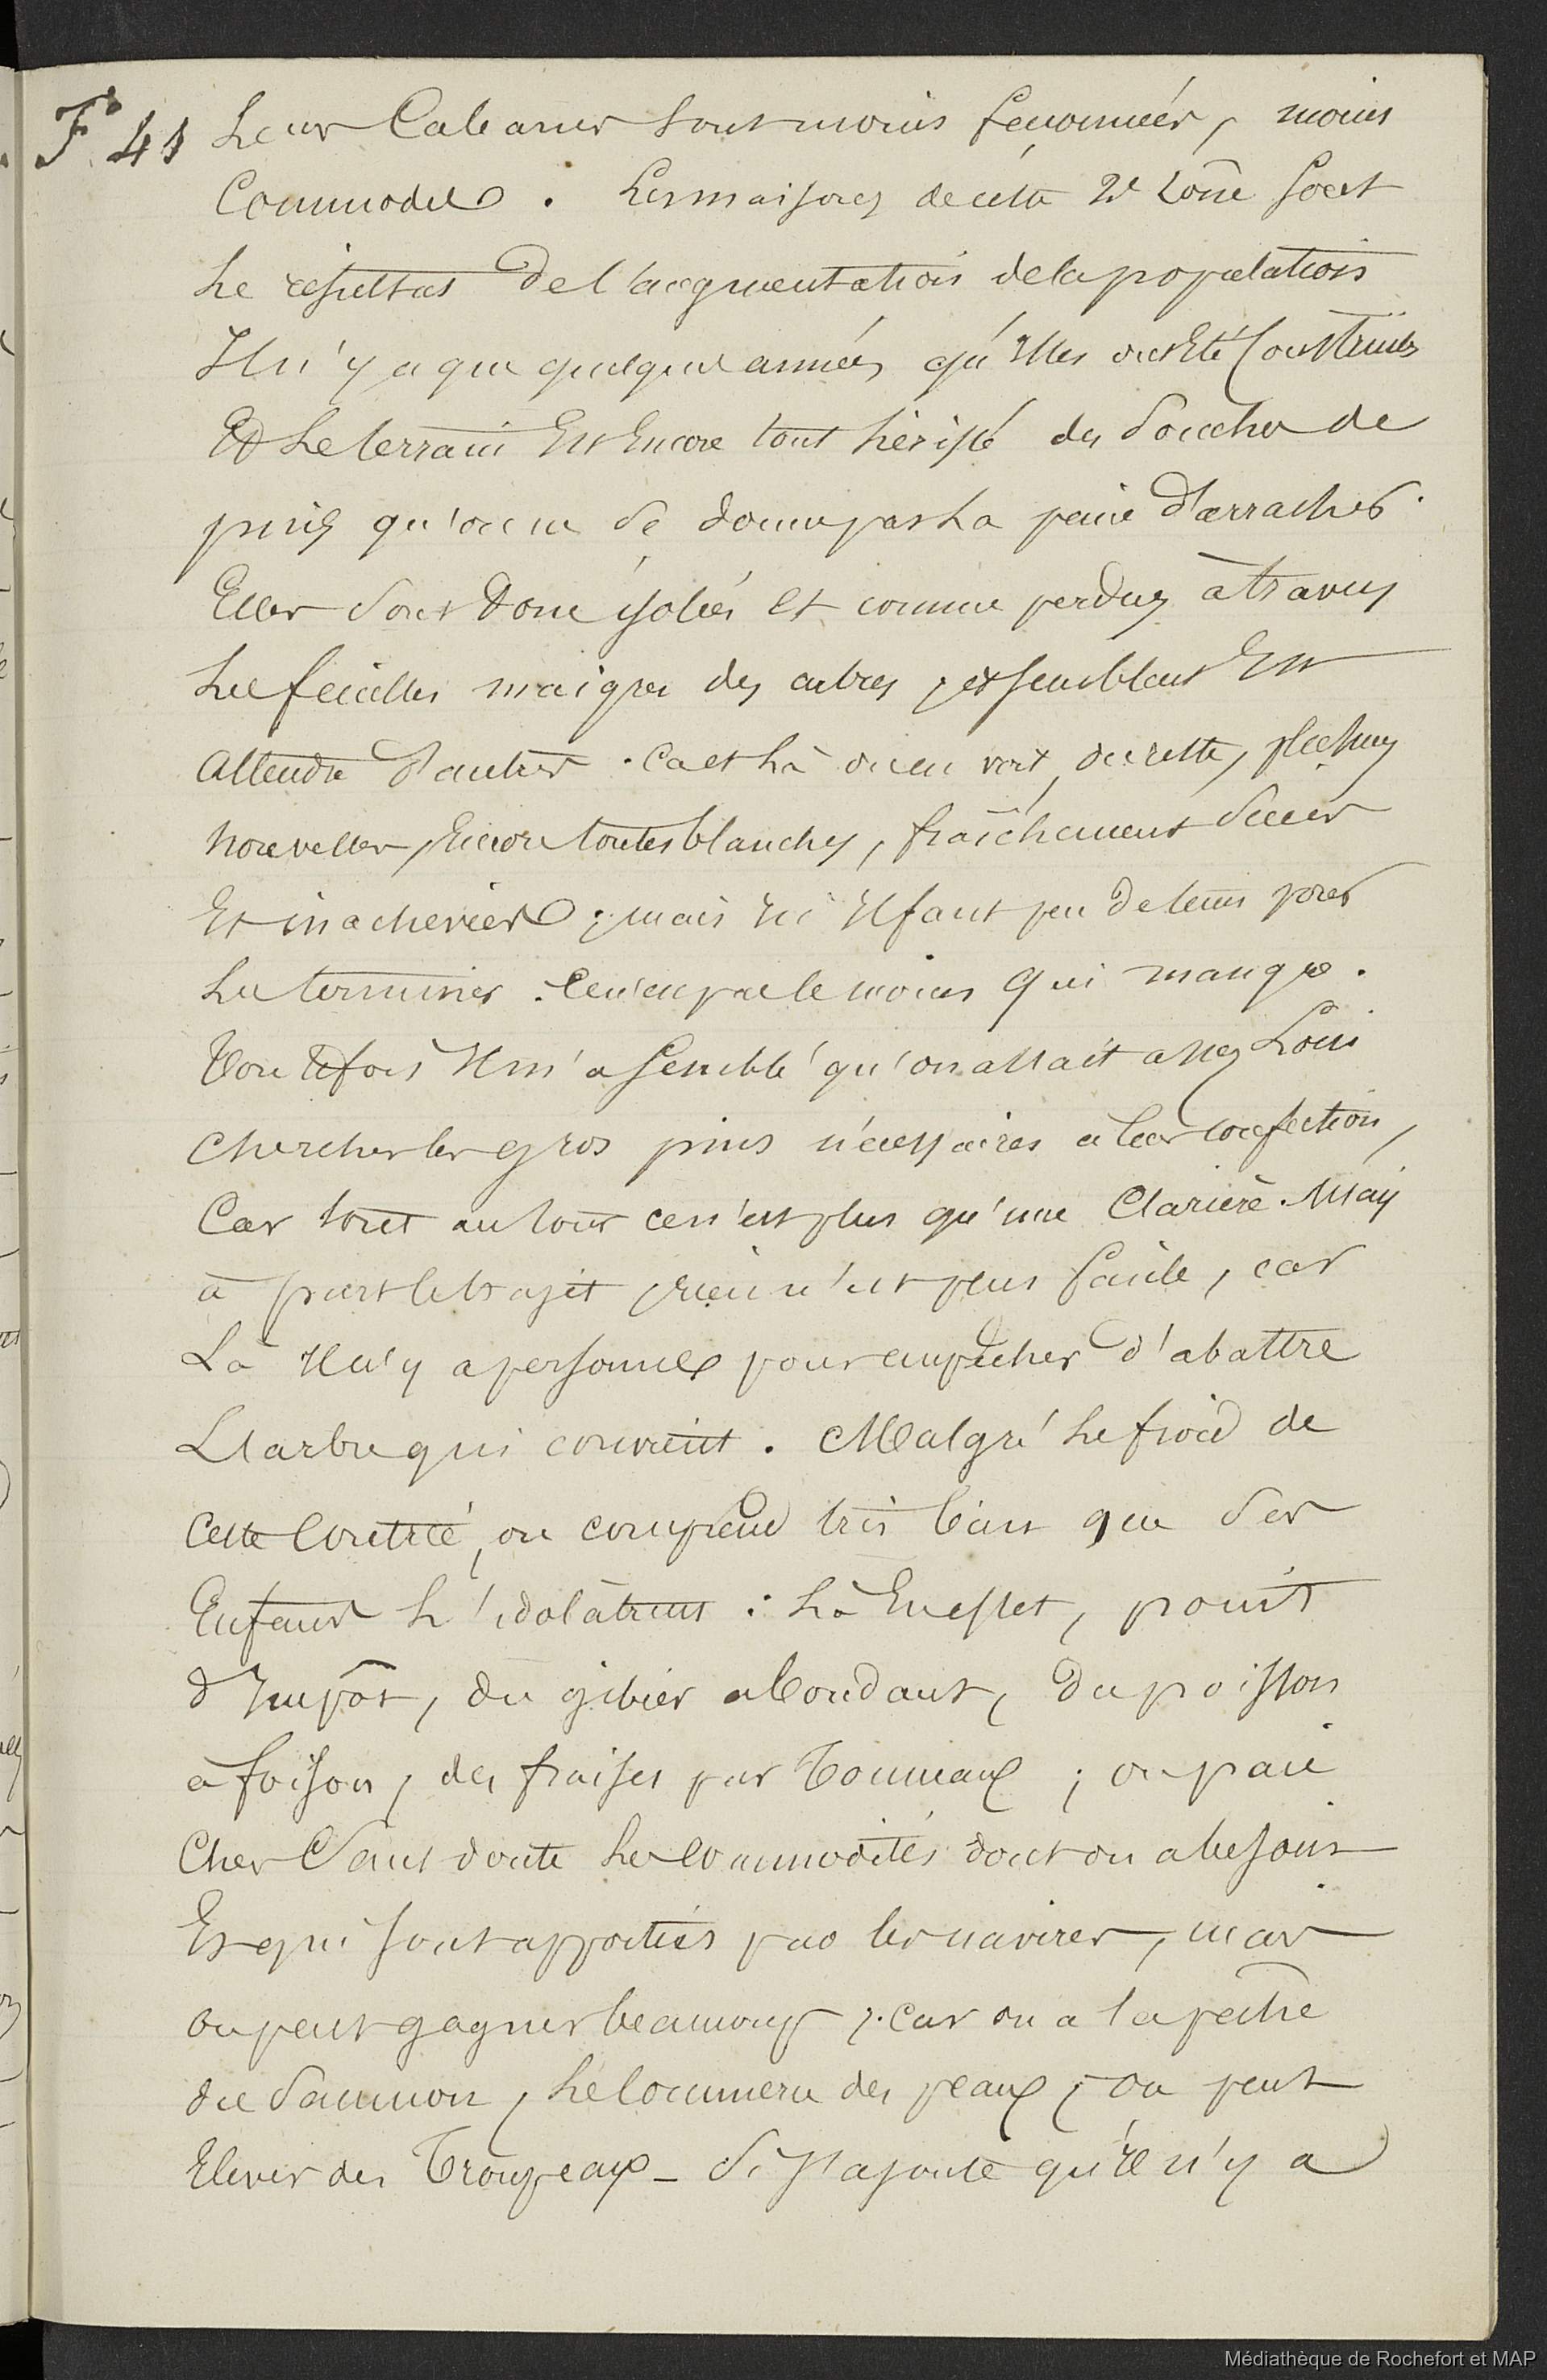 F° 41 Leur Cabanes sont moins façonnées, moins
Commodes. Les maisons de cette 2e zone sont
Le résultat de l'augmentation de la population
Il n'y a que quelques années qu'Elles ont Eté Construites
Et Le terrain Est Encore tout hérissé des souches de
pins qu'on ne se donne pas La peine d'arracher.
Elles sont donc isolées et comme perdues à travers
Les feuilles maigres des arbres, et semblent En
Attendre d'autres. Ca et Là on en voit, du reste, plusieurs
Nouvelles, Encore toutes blanches, fraîchement sciées
Et inachevées; mais ici Il faut peu de tems pour
Les terminer. Ce n'en pas le moins qui manque.
Toutefois Il m'a semblé qu'on allait assez Loin
Chercher les gros pins nécessaires à leur confection,
Car tout autour ce n'est plus qu'une Clarière. Mais
à part le trajet, rien n'est plus facile, car
Là Il n'y a personne pour empêcher d'abattre
L'arbre qui convient. Malgré Le froid de
Cette Contrée, on comprend très bien que ses
Enfans L'idolâtrent : Là En effet, point
d'Impôt, du gibier abondant, du poisson
à foison, des fraises par Tonneaux; on paie
Cher Sans doute Les commodités dont on a besoin
Et qui sont apportées par les navires, mais
On peut gagner beaucoup; car on a la pêche
du Saumon, Le Commerce des peaux; on peut
Elever des Troupeaux – Si J'ajoute qu'il n'y a
Médiathèque de Rochefort et MAP